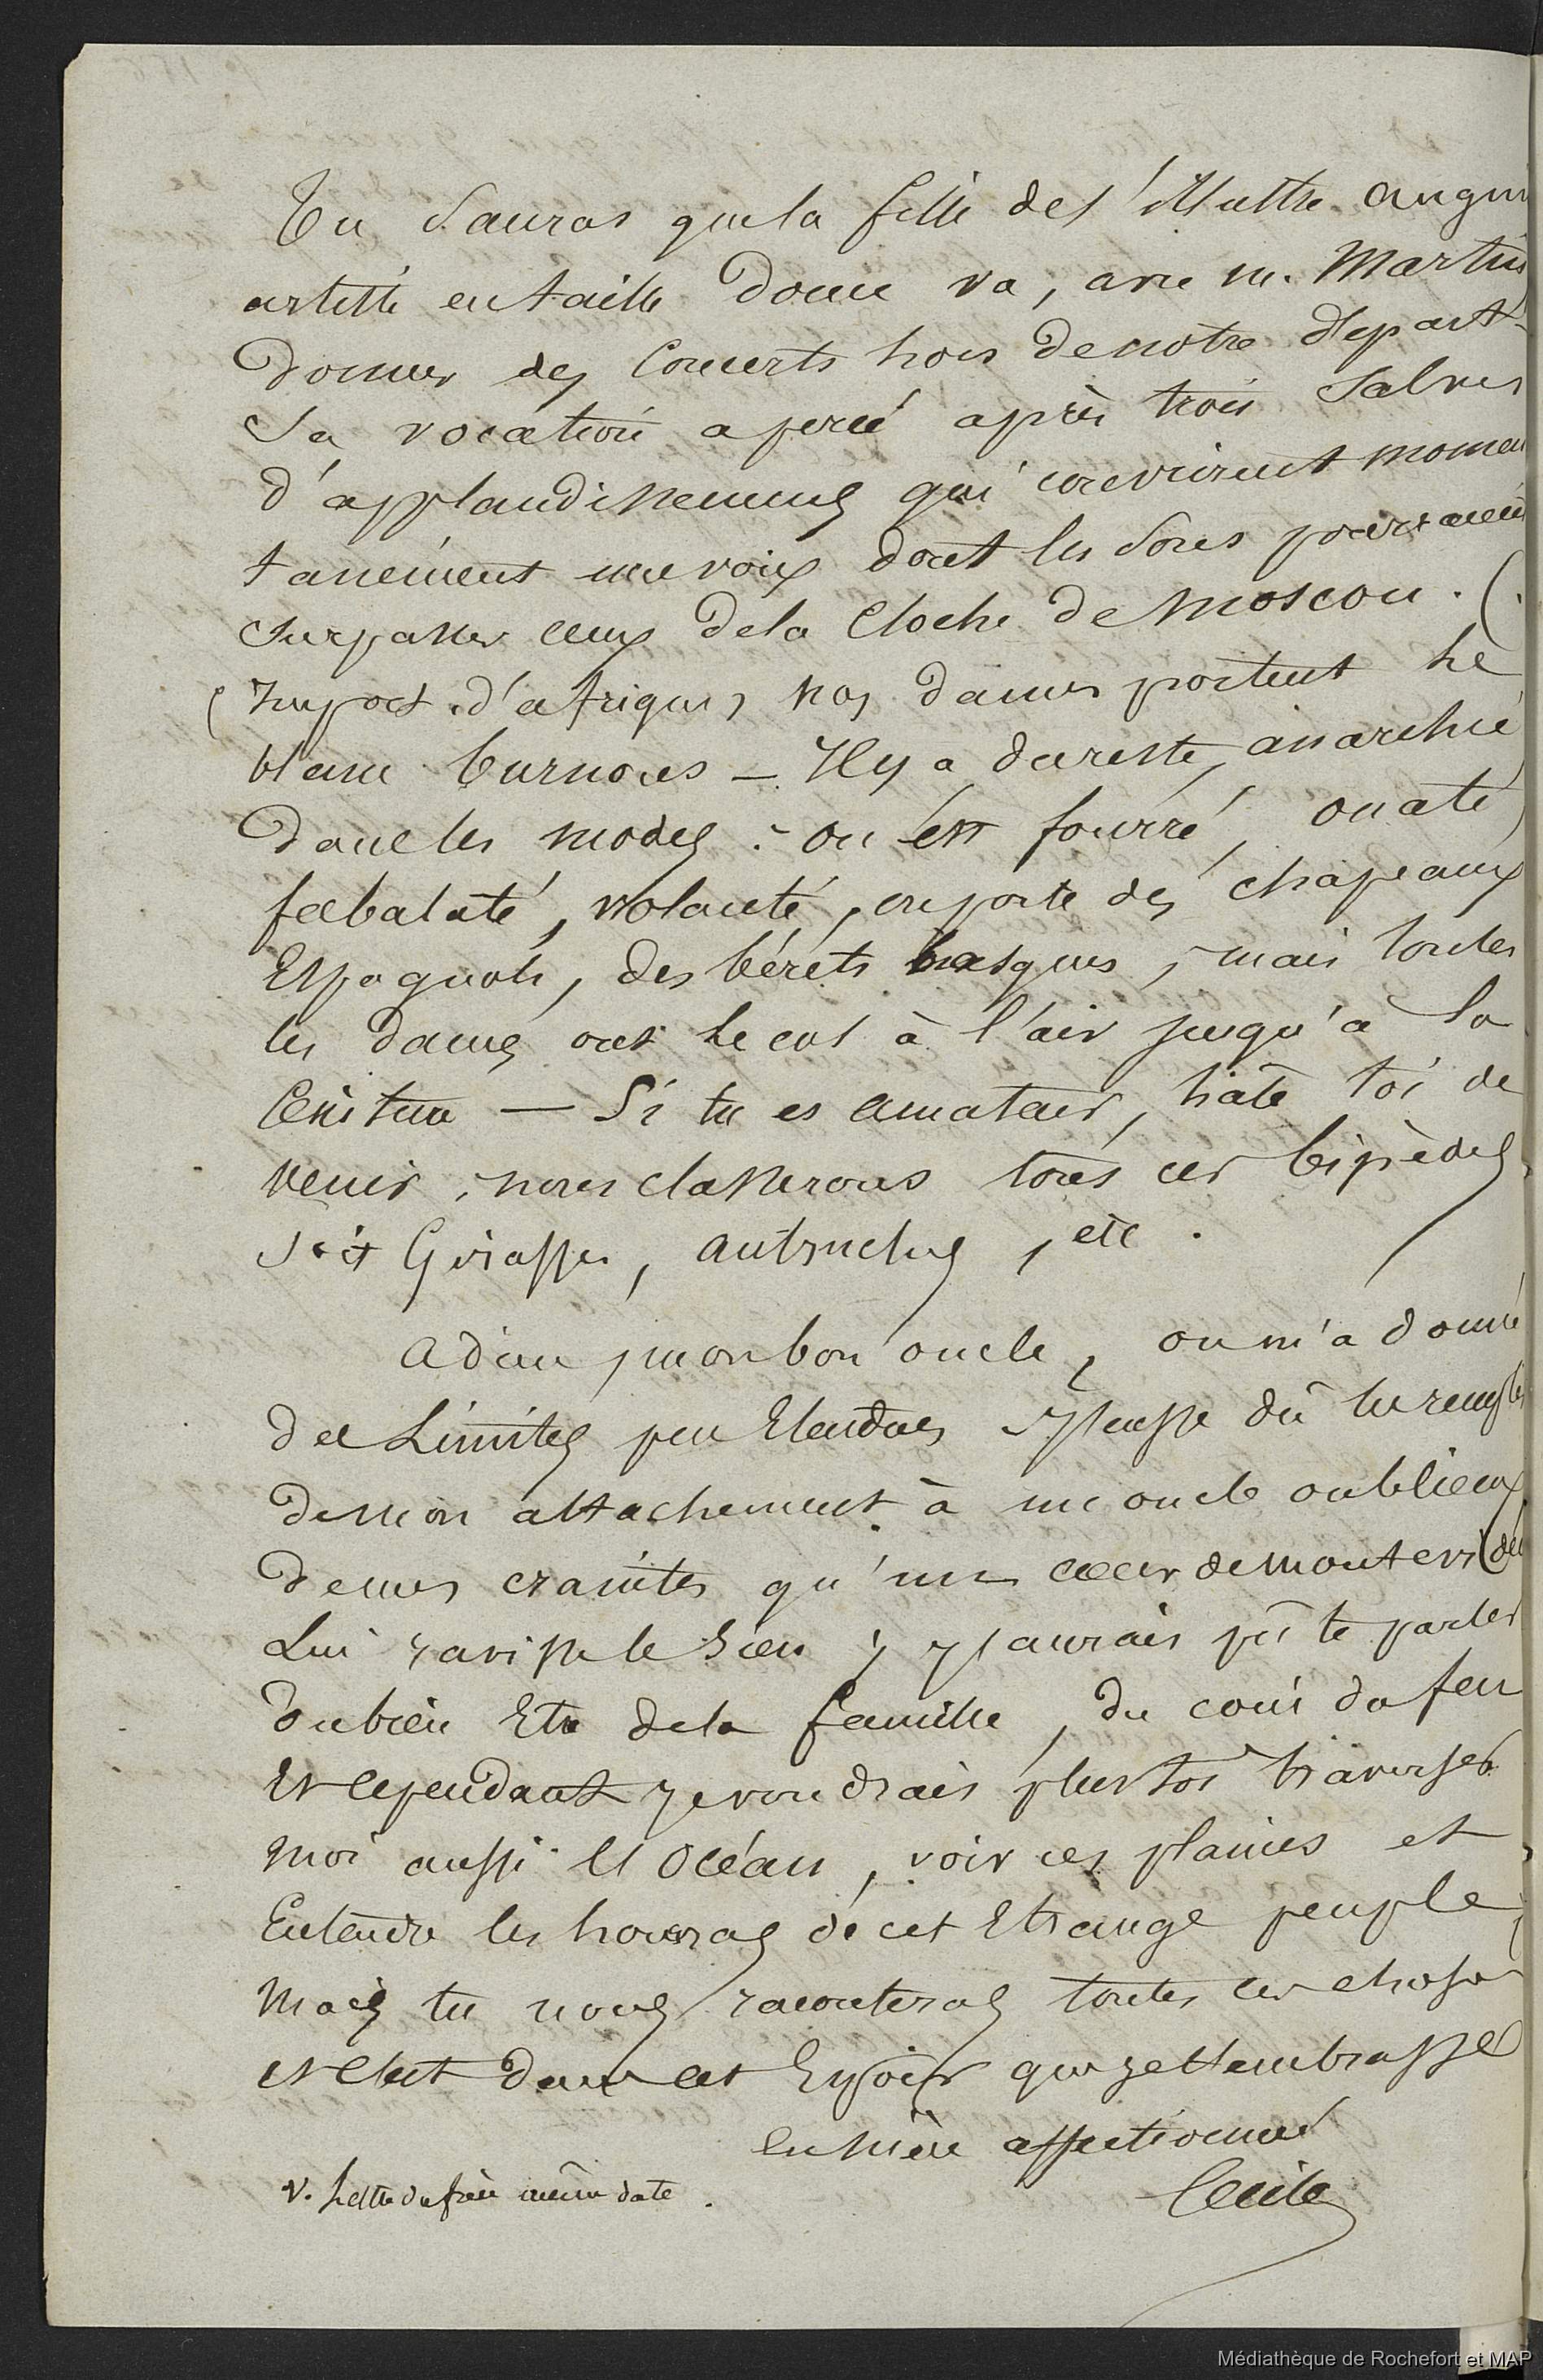 Tu Sauras que la fille de l'illustre augui
artiste en taille Douce va, avec m. Martin
Donner des Concerts hors de notre Départ-
Sa vocation a percé après trois Salves
d'applaudissemens qui couvrirent momen
tanément une voix dont les Sons pourraient
Surpasser ceux de la Cloche de Moscou. (.
(Import. d'afrique) nos dames portent le
blanc burnous — Il y a du reste, anarchie
Dans les modes : on est fourré, ouaté,
falbalaté, volanté, on porte des chapeaux
Espagnols, des bérets basques, mais toutes
les Dames ont le col à l'air jusqu'à la
Ceinture — Si tu es amateur, hâte toi de
venir, nous classerons tous ces bipèdes
Soit Giraffes, autruches, etc.
adieu mon bon oncle, on m'a donné
des Limites peu Etendues J'eusse dû les rempl
de mon attachement à un oncle oublieux
de mes craintes qu'un cœur de montevidéo
Lui ravisse le Sien ; J'aurais pû te parler
du bien Etre de la famille, du coin du feu
Et cependant Je voudrais plustot traverser
moi aussi l'Océan, voir ces plaines et
Entendre les houras de cet Etrange peuple,
Mais tu nous raconteras toutes ces choses
et c'est dans cet Espoir que je t'embrasse
en nièce affectionnée
Cecile
V. Lettre du frère même date.
Médiathèque de Rochefort et MAP